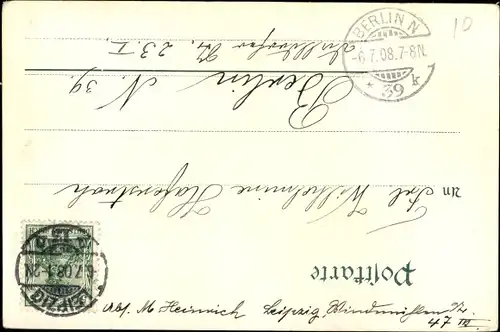 Postkarte
An Frl. Wilhelmine Hagenstroh
Berlin N. 39.
23. I.
BERLIN N
-6.7.08.7-8N.
* 39 k
LEIPZIG
6.7.08.
Abs. M Heinrich Leipzig, Windmühlenstr
47 III
10